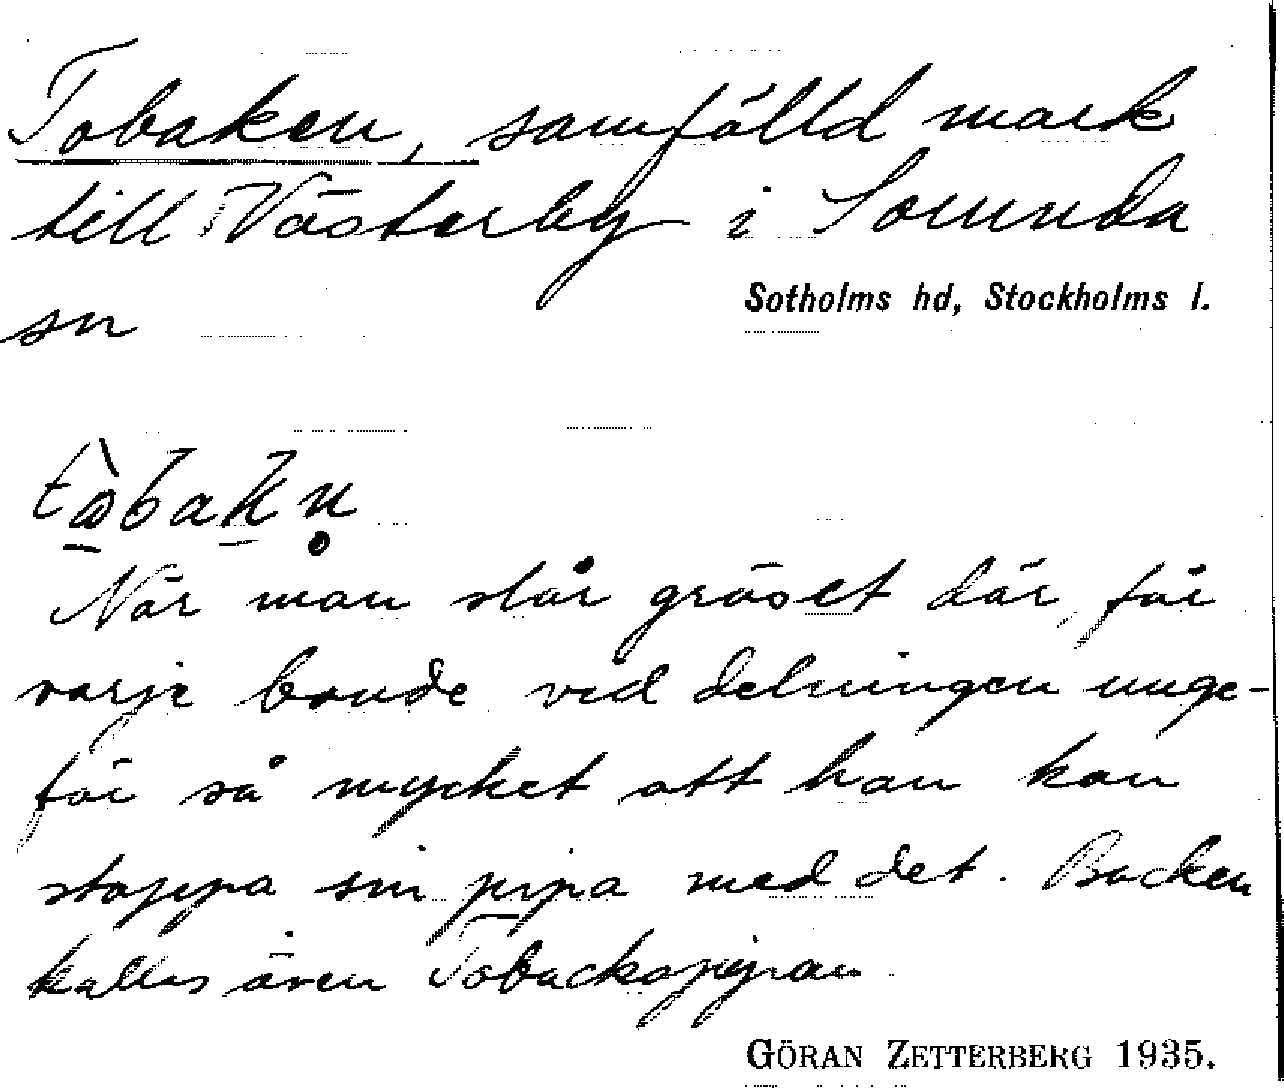 Tobaken, samfälld mark
till Västerby i Sorunda
Sotholms hd, Stockholms l.
sn
tòbakn̥
När man slår gräset där, får
varje bonde vid delningen unge-
fär så mycket att han kan
stoppa sin pipa med det. Backen
kallas även Tobackspipan.
GÖRAN ZETTERBERG 1935.